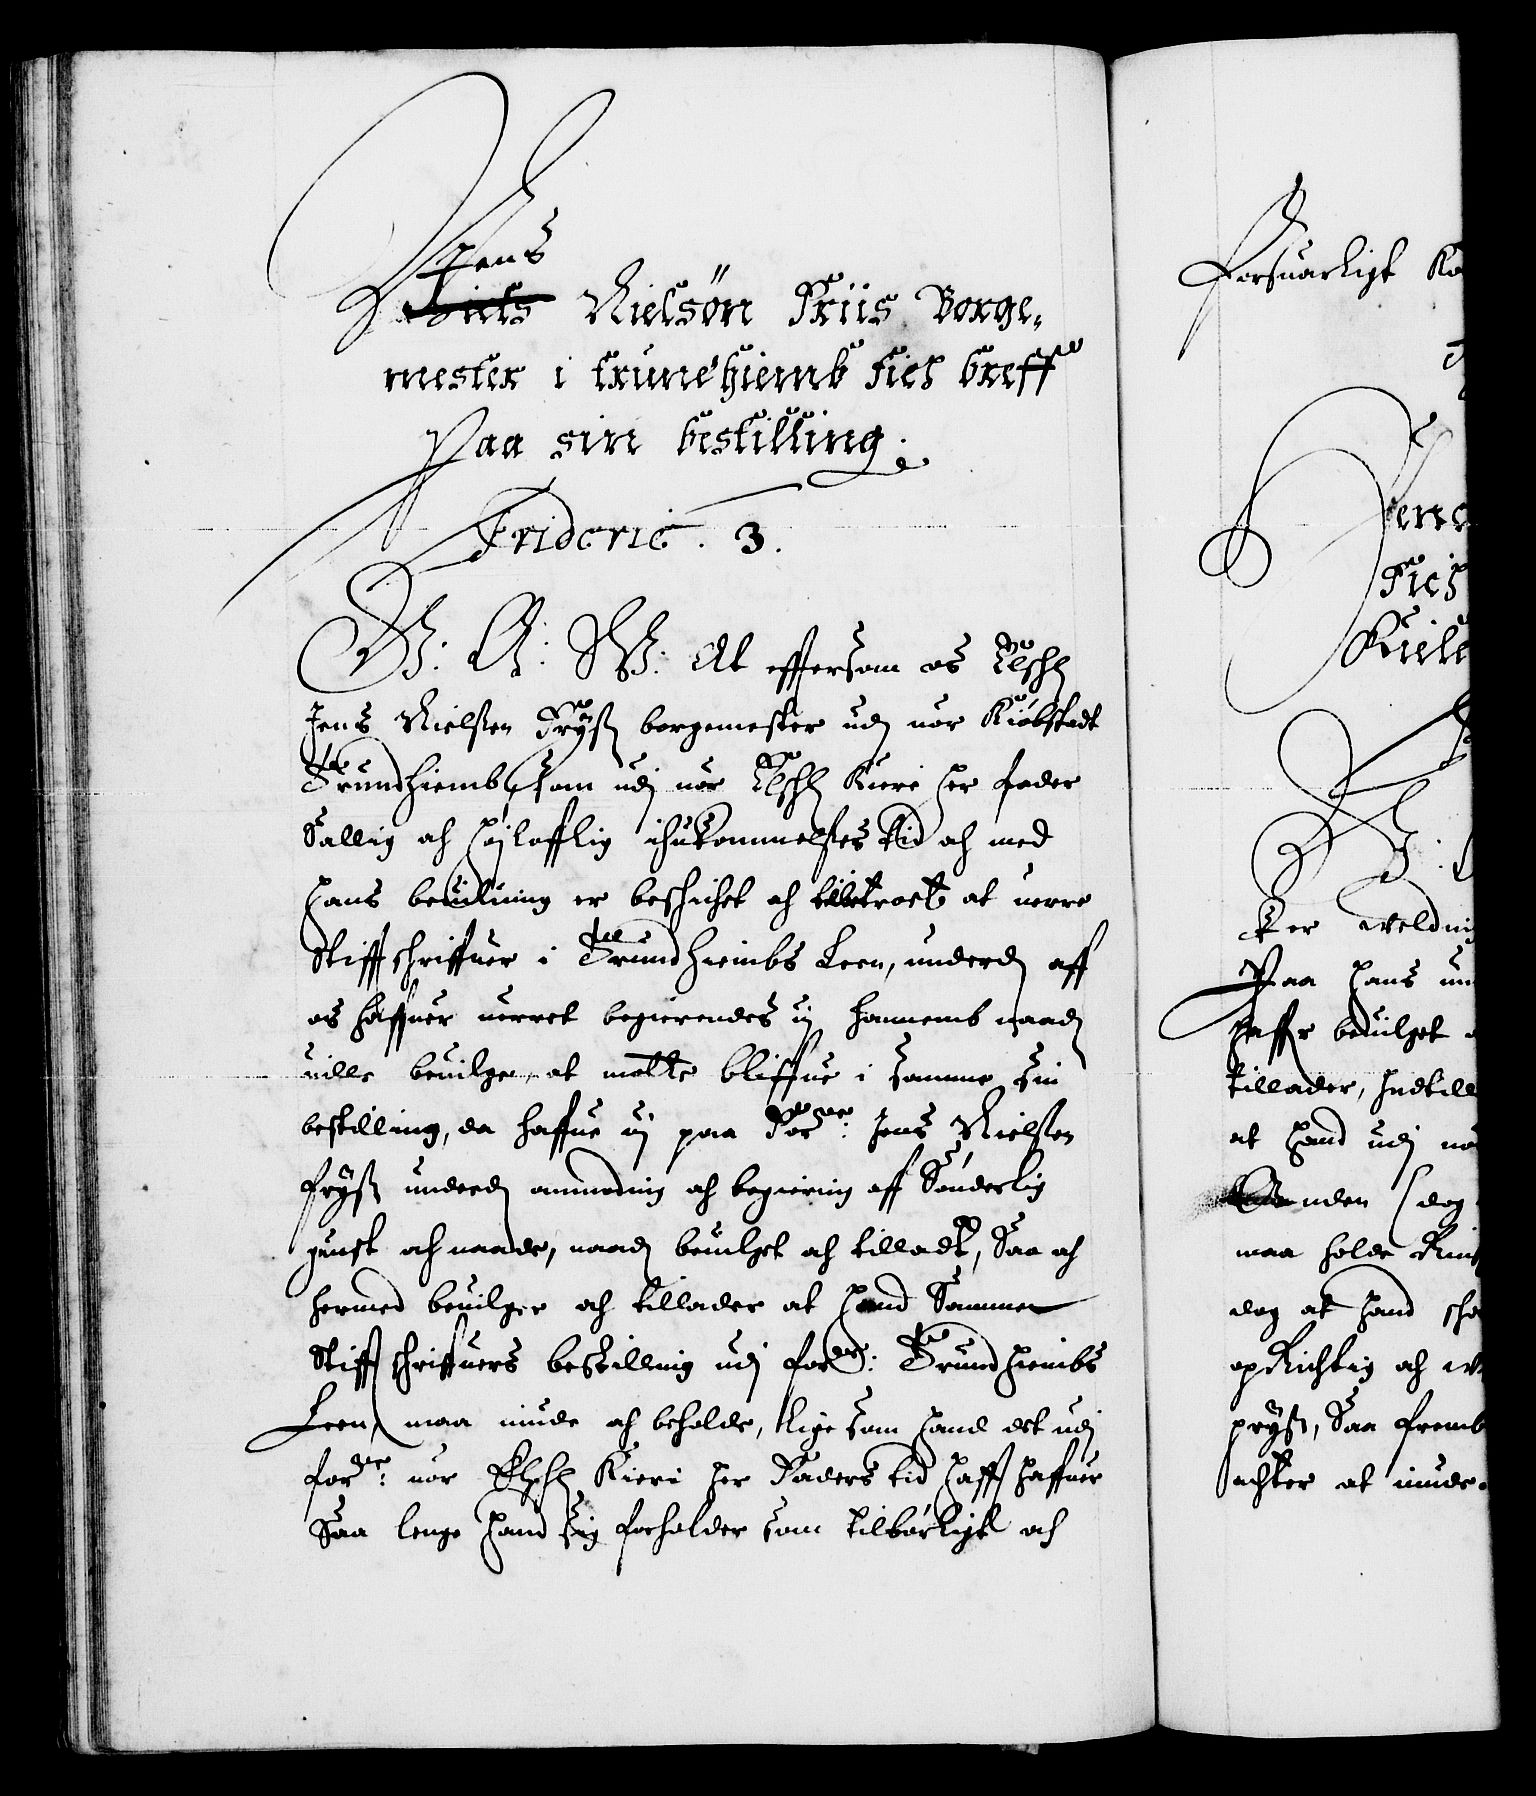 Jens
Niels Nielsøn Friis Borge,
mester i trunehiemb Fich breff
Paa sin bestilling.
Frideric. 3.
G: A: W: At effersom os Elschl
Jens Nielsen Fryß borgemester udj vor Kiøbstadt
Trundhiemb, som udj vor Elschl Kiere her fader
Sallig och høylofflig ihukommelses tid och med
hans beuilning er beschichet och tilbetroet at verre
Stiffschriffuer i Trundhiembs Leen, underd: aff
os haffuer verret begierendes vj hannemb naad:
ville beuilge, at motte bliffue i samme sin
bestilling, da haffue vj paa forne: Jens Nielsen
fryß underd: anmoding och begiering aff Sønderlig
gunst och naade, naad: beuilget och tilladt, Saa och
hermed beuilger och tillader at hand Samme
Stiffschriffuers bestilling udj forne: Trundhiembs
Leen, maa niude och beholde, lige som hand det udj
forne: vor Elschl Kiere her Faders tid hafft haffuer
Saa lenge hand sig forholder som tilbørligt och
Forsuarligt
Fich
G:
ker veldni
Paa hans un
haffr beuilget
tillader, Indtill
at hand udj no
uden (dog
maa holde
dog at hand sch
opRichtig och
pryß, Saa fremb
achter at niude.